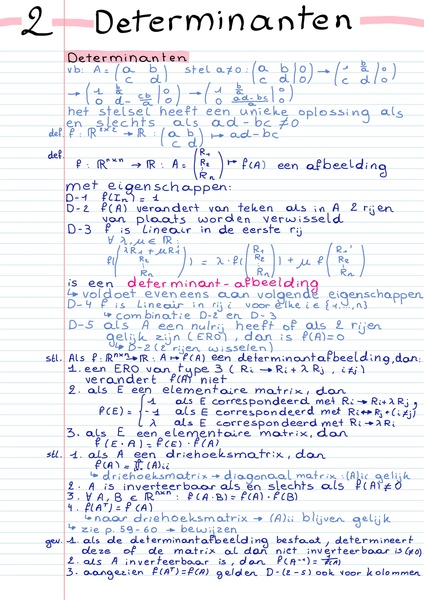 2 Determinanten
Determinanten
vb: A = (a b / c d) stel a≠0 : (a b | 0 / c d | 0) → (1 b/a | 0 / c d | 0)
→ (1 b/a | 0 / 0 d - cb/a | 0) → (1 b/a | 0 / 0 ad-bc/a | 0)
het stelsel heeft een unieke oplossing als
en slechts als ad-bc ≠0
def. f: ℝ²ˣ² → ℝ : (a b / c d) ↦ ad-bc
def. f: ℝⁿˣⁿ → ℝ : A = (R₁ / R₂ / ⋮ / Rₙ) ↦ f(A) een afbeelding
met eigenschappen:
D-1 f(Iₙ) = 1
D-2 f(A) verandert van teken als in A 2 rijen
van plaats worden verwisseld
D-3 f is lineair in de eerste rij
∀ λ,μ ∈ ℝ:
f(λR₁ + μR₁' / R₂ / ⋮ / Rₙ) = λ·f(R₁ / R₂ / ⋮ / Rₙ) + μ f(R₁' / R₂ / ⋮ / Rₙ)
is een determinant-afbeelding
↳ voldoet eveneens aan volgende eigenschappen
D-4 f is lineair in rij i voor elke i ∈ {1,...,n}
↳ combinatie D-2 en D-3
D-5 als A een nulrij heeft of als 2 rijen
gelijk zijn (ERO), dan is f(A)=0
↳ D-2 (2 rijen wisselen)
stl. Als f: ℝⁿˣⁿ → ℝ : A ↦ f(A) een determinantafbeelding, dan:
1. een ERO van type 3 (Ri → Ri + λRj, i≠j)
verandert f(A) niet
2. als E een elementaire matrix, dan
f(E) = { 1 als E correspondeerd met Ri → Ri + λRj
-1 als E correspondeerd met Ri ↔ Rj (i≠j)
λ als E correspondeerd met Ri → λRi
3. als E een elementaire matrix, dan
f(E·A) = f(E)·f(A)
stl. 1. als A een driehoeksmatrix, dan
f(A) = ∏ (A)ii
↳ driehoeksmatrix → diagonaal matrix : (A)ii gelijk
2. A is inverteerbaar als en slechts als f(A) ≠ 0
3. ∀ A, B ∈ ℝⁿˣⁿ : f(A·B) = f(A)·f(B)
4. f(Aᵀ) = f(A)
↳ naar driehoeksmatrix → (A)ii blijven gelijk
↳ zie p. 59-60 → bewijzen
gev. 1. als de determinantafbeelding bestaat, determineert
deze of de matrix al dan niet inverteerbaar is (≠0)
2. als A inverteerbaar is, dan f(A⁻¹) = 1/f(A)
3. aangezien f(Aᵀ)=f(A) gelden D-(2-5) ook voor kolommen